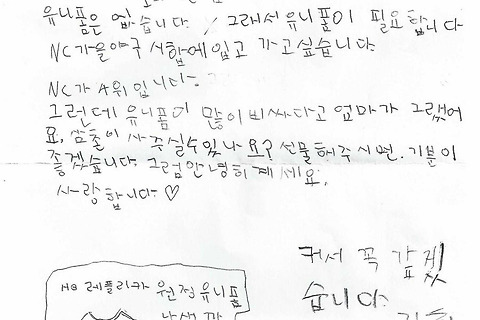 유니폼은 없습니다. 그래서 유니폼이 필요합니다
NC가을야구 시합에 입고 가고싶습니다.
NC가 4위입니다.
그런데 유니폼이 많이 비싸다고 엄마가 그랬어
요. 삼촌이 사주실수있나요? 선물해주시면. 기분이
좋겠습니다. 그럼안녕히계세요.
사랑합니다. ♡
커서 꼭 갑겟
습니다.
NC 레플리카 원정 유니폼